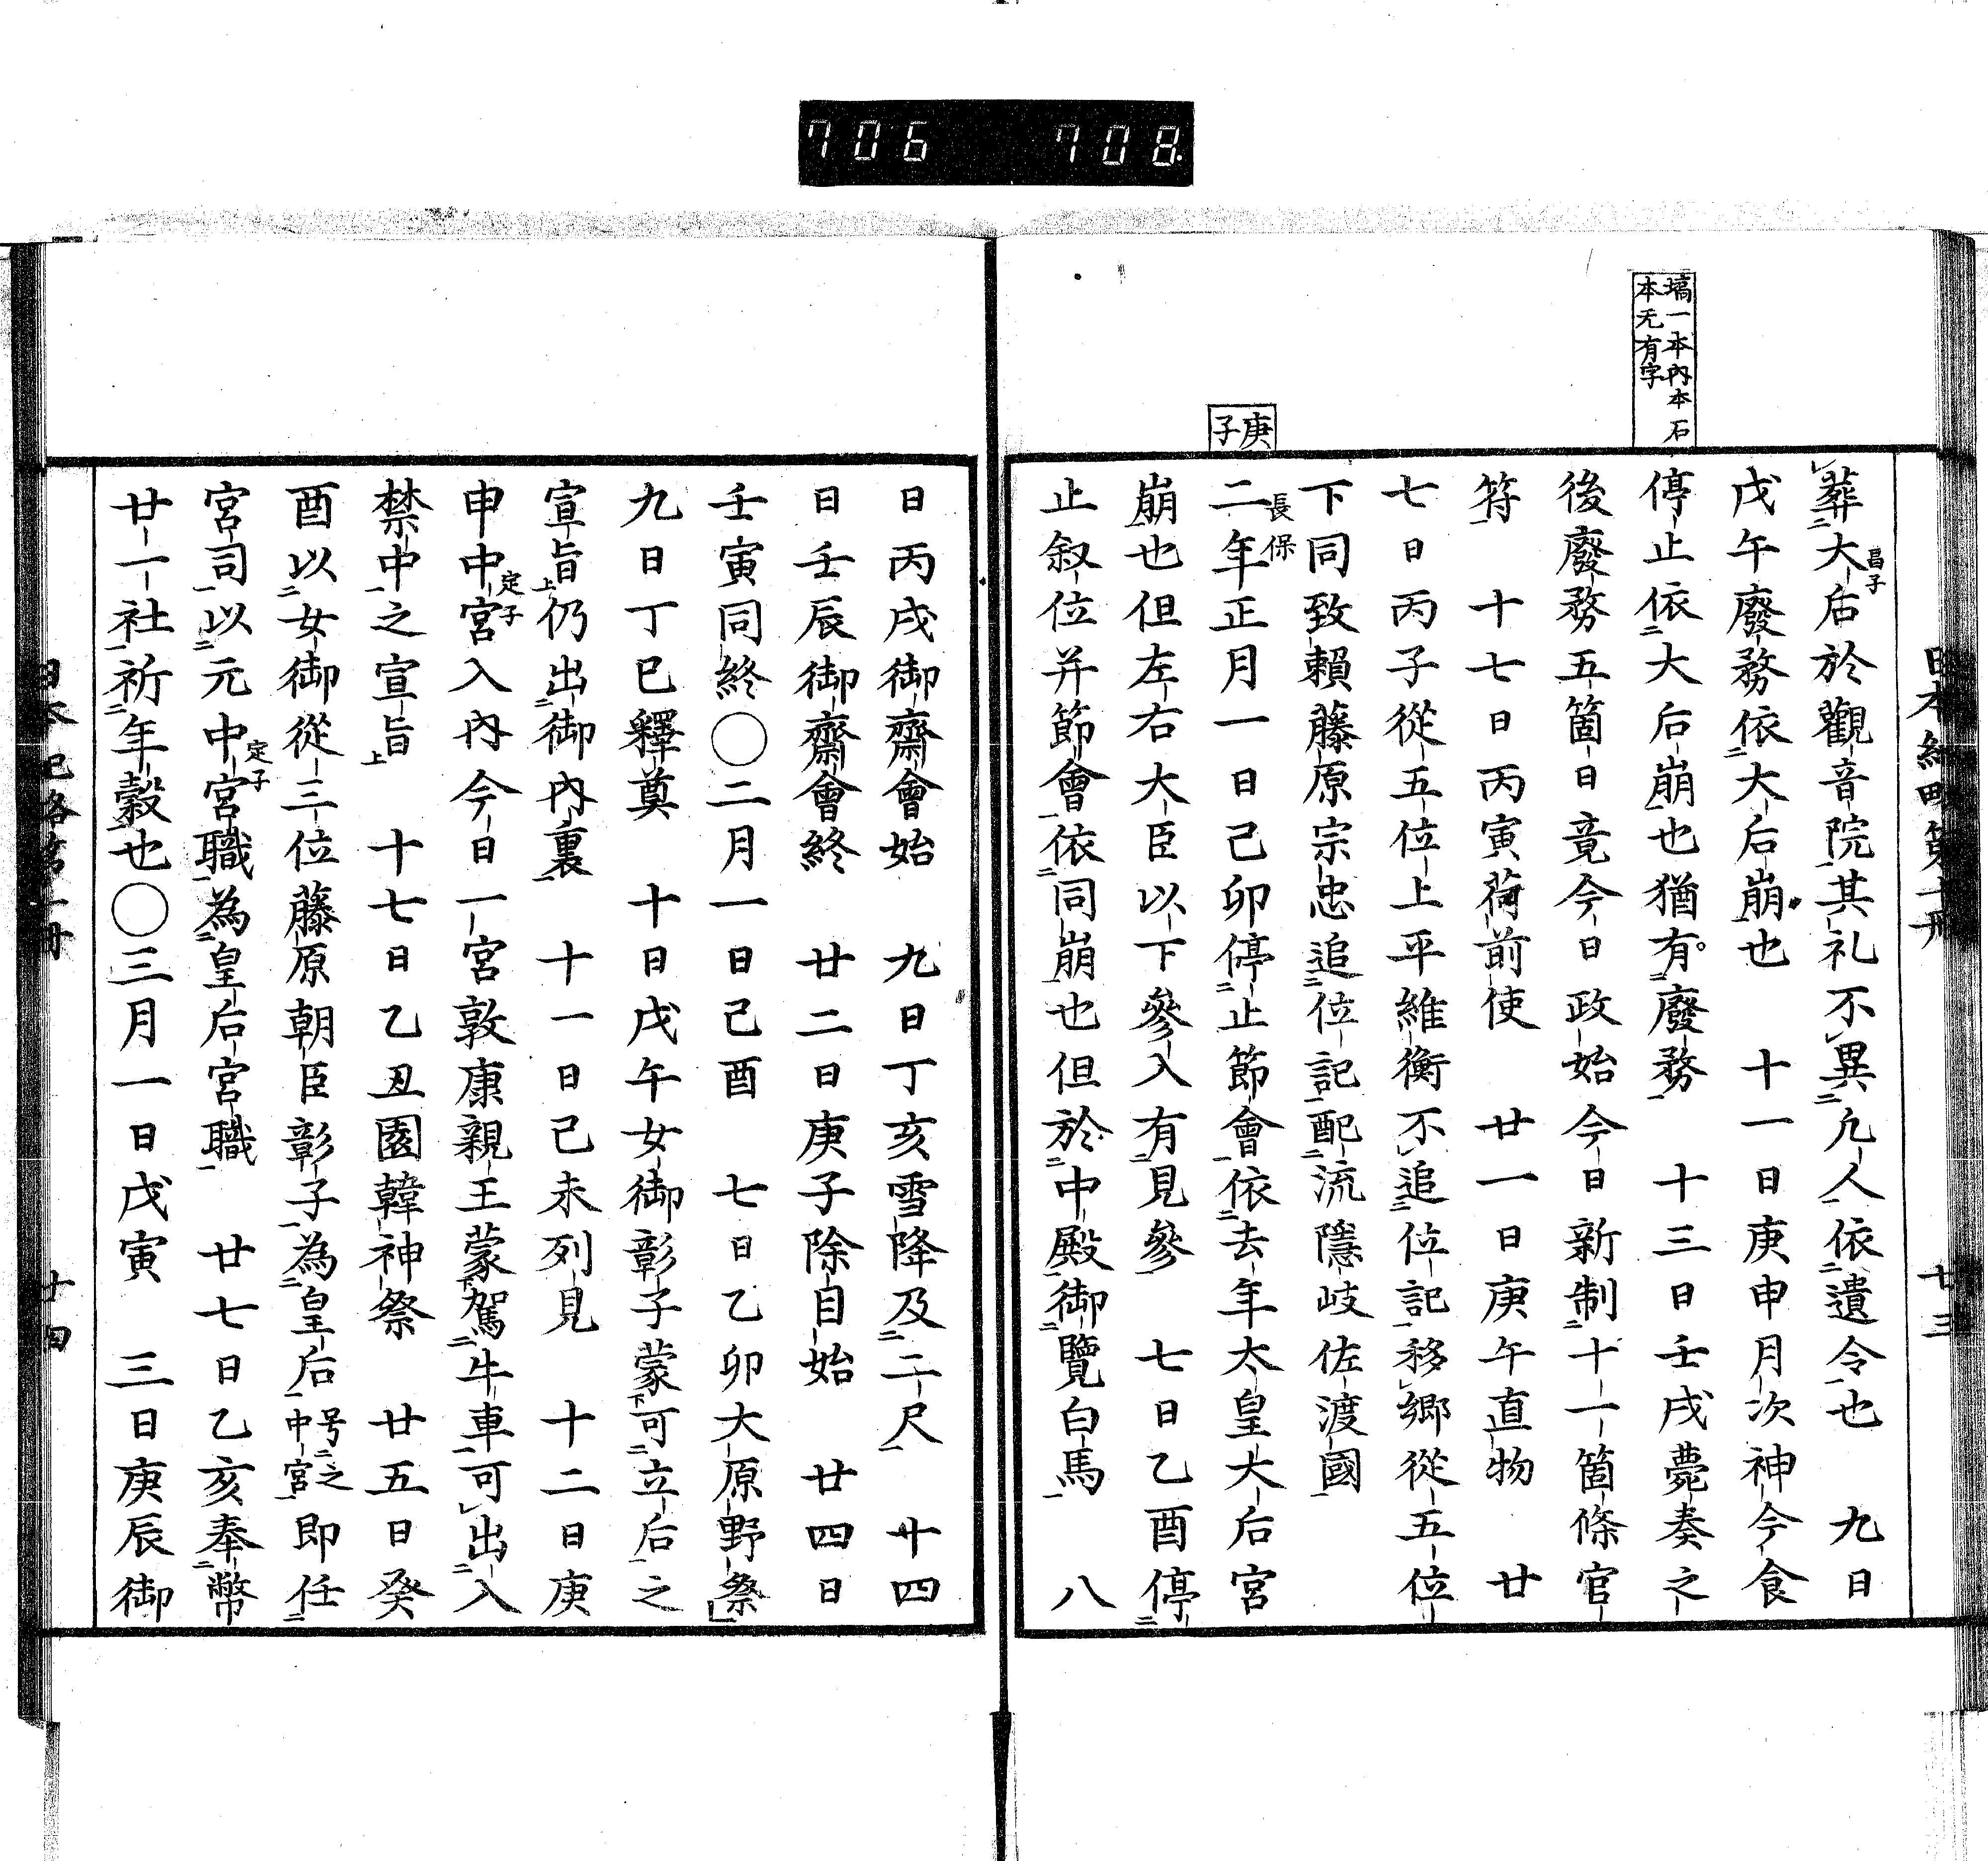 706 708
塙一本内本石
本无有字
庚子
日本紀略第十冊
廿三
葬大后於觀音院其礼不異凡人依遺令也　九日
昌子
戊午廢務依大后崩也　十一日庚申月次神今食
停止依大后崩也猶有廢務　十三日壬戌薨奏之
後廢務五箇日竟今日政始今日新制十一箇條官
符　十七日丙寅荷前使　廿一日庚午直物　廿
七日丙子從五位上平維衡不追位記移郷從五位
下同致賴藤原宗忠追位記配流隱岐佐渡國
長保
二年正月一日己卯停止節會依去年太皇大后宮
崩也但左右大臣以下參入有見參　七日乙酉停
止叙位并節會依同崩也但於中殿御覽白馬　八
日丙戌御齋會始　九日丁亥雪降及二尺　十四
日壬辰御齋會終　廿二日庚子除目始　廿四日
壬寅同終○二月一日己酉　七日乙卯大原野祭
九日丁巳釋奠　十日戊午女御彰子蒙可立后之
宣旨仍出御内裏　十一日己未列見　十二日庚
申中宮入内今日一宮敦康親王蒙駕牛車可出入
定子
禁中之宣旨　十七日乙丑園韓神祭　廿五日癸
酉以女御從三位藤原朝臣彰子為皇后号之中宮即任
宮司以元中宮職為皇后宮職　廿七日乙亥奉幣
定子
廿一社祈年穀也○三月一日戊寅　三日庚辰御
日本紀略第十冊
廿四